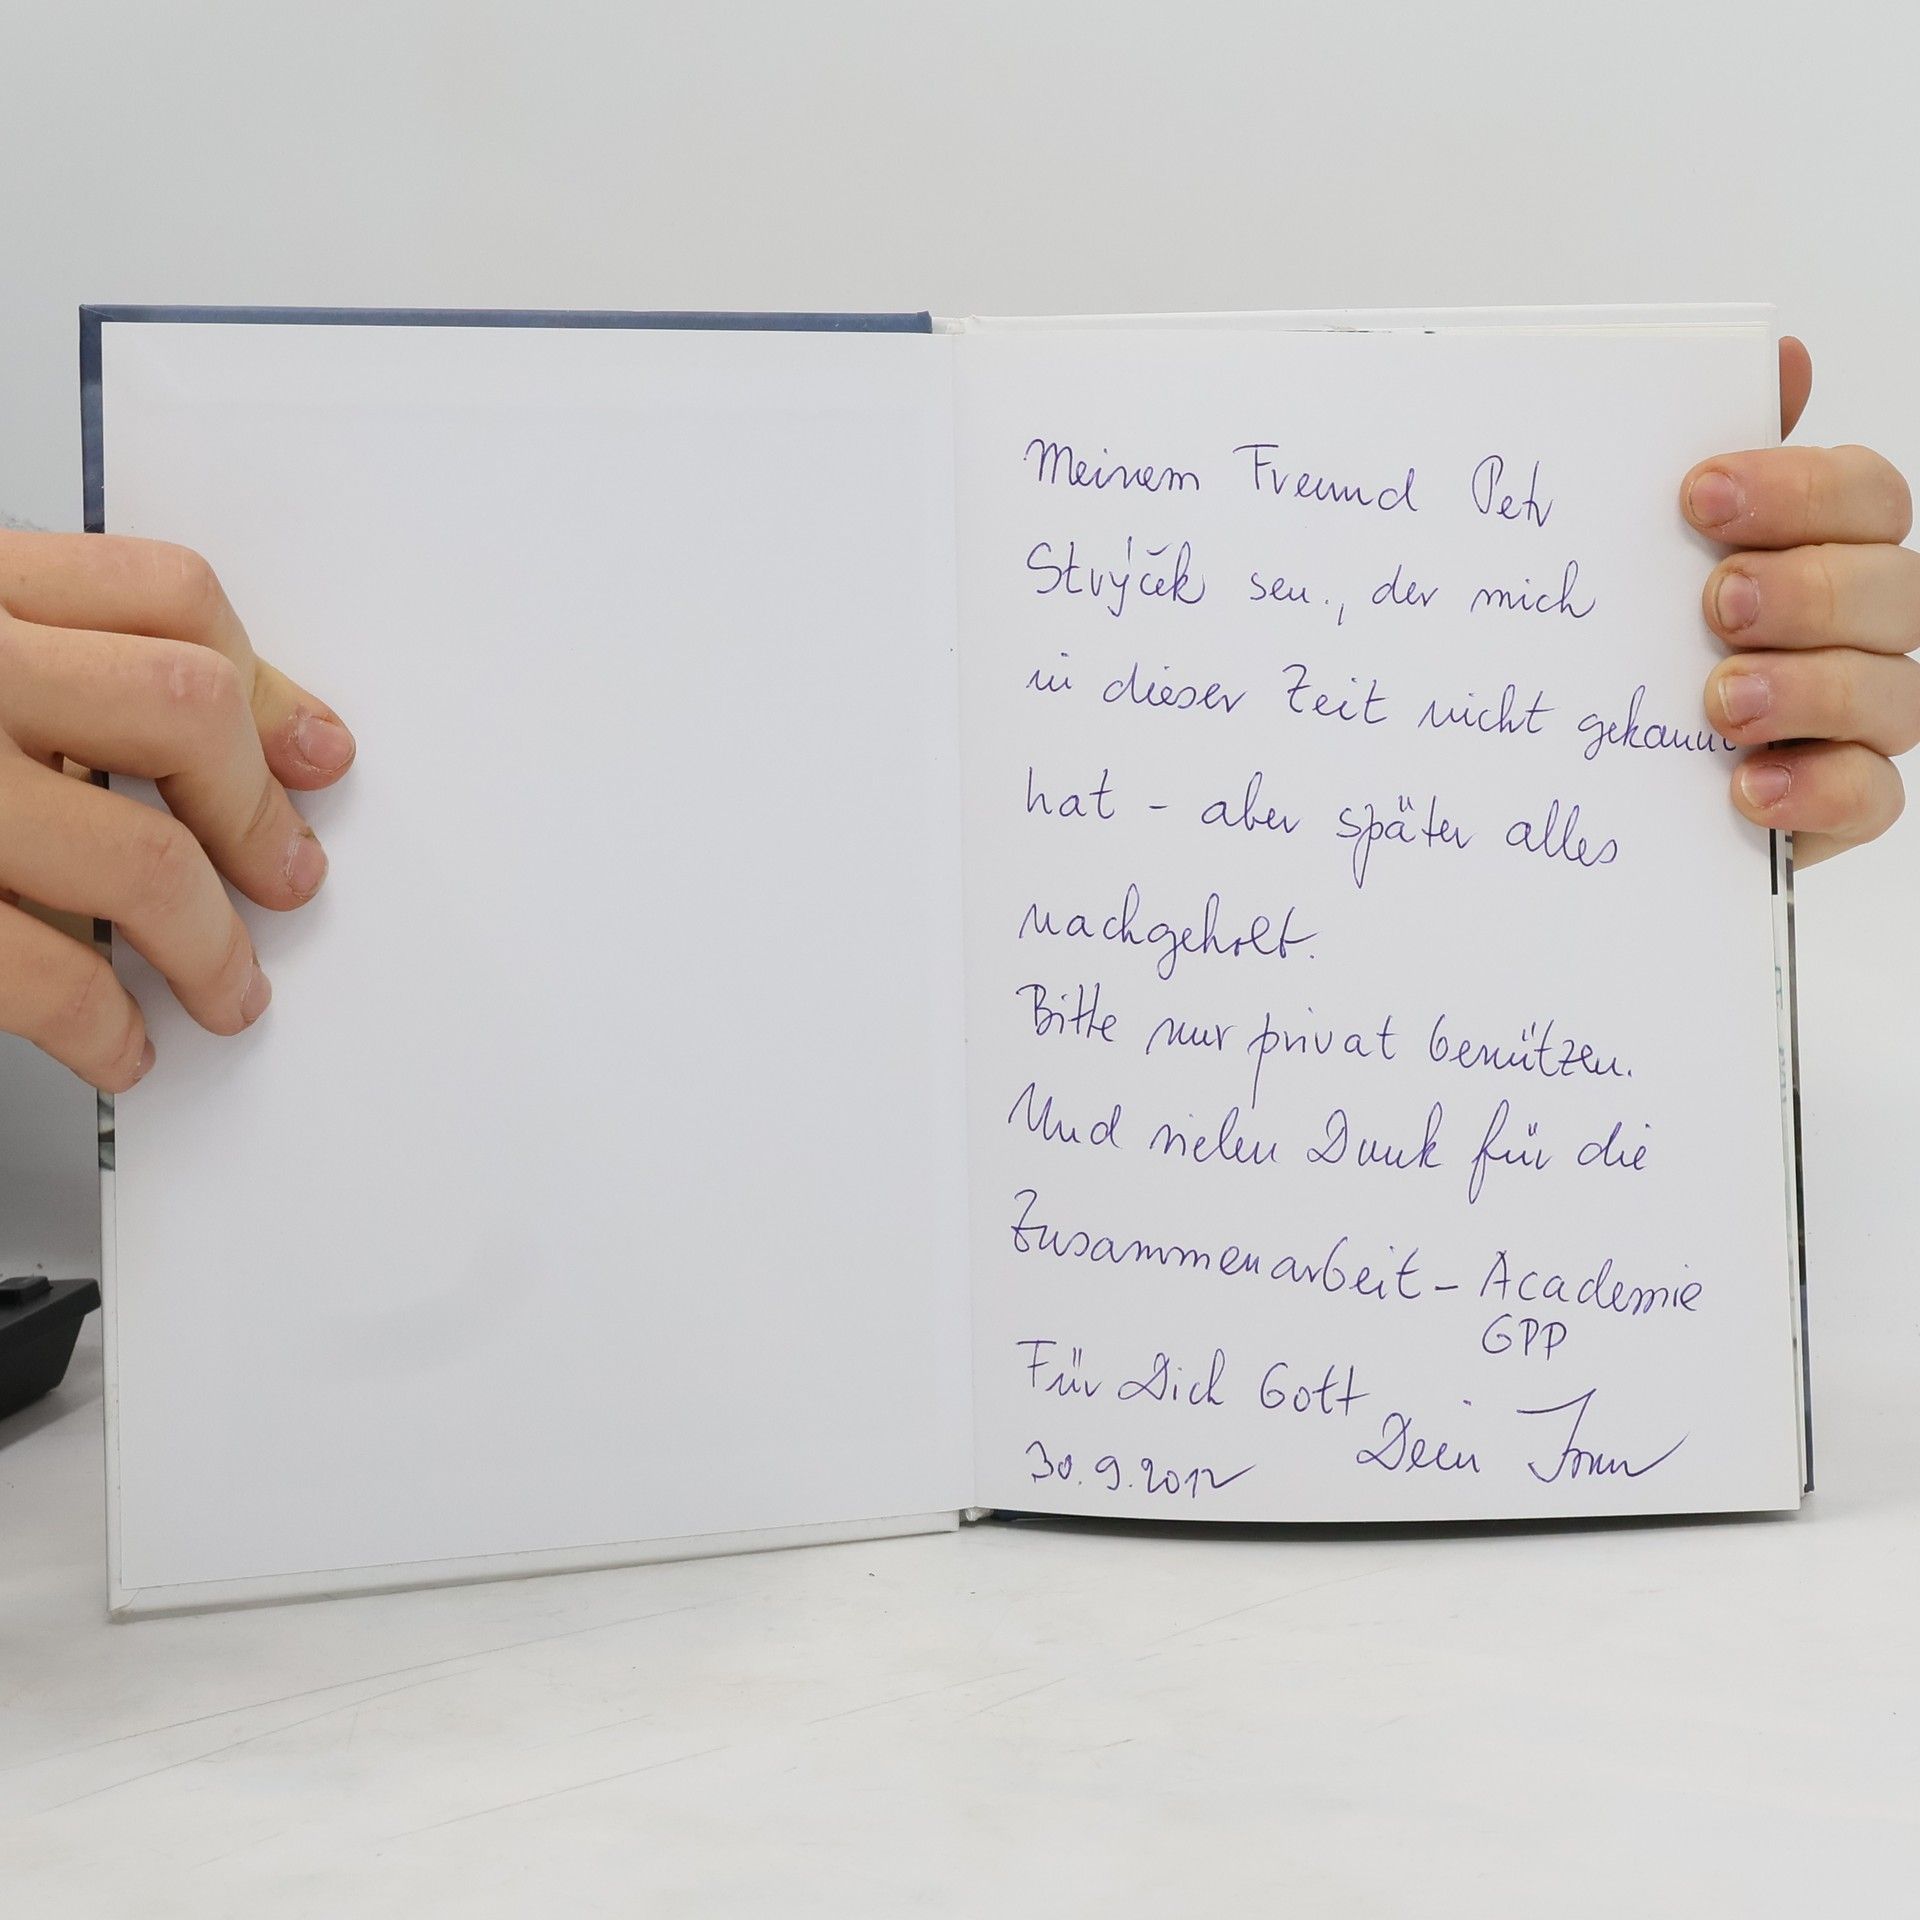 Meinem Freund Petr
Strýček sen., der mich
in dieser Zeit nicht gekannt
hat - aber später alles
nachgeholt.
Bitte nur privat benützen.
Und vielen Dank für die
Zusammenarbeit - Academie
GPP
Für Dich Gott
Dein
30.9.2012